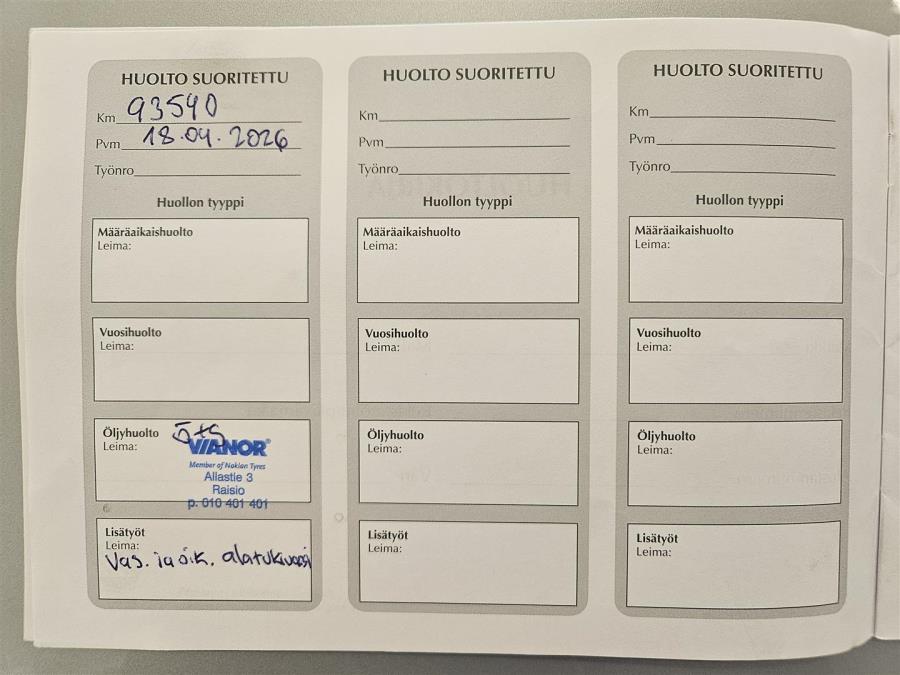 HUOLTO SUORITETTU
Km 93540
Pvm 18.04.2026
Työnro
Huollon tyyppi
Määräaikaishuolto
Leima:
Vuosihuolto
Leima:
Öljyhuolto
Leima:
Ö+S
VIANOR
Member of Nokian Tyres
Allastie 3
Raisio
p. 010 401 401
Lisätyöt
Leima:
Vas. ja oik. alatukivarsi
HUOLTO SUORITETTU
Km
Pvm
Työnro
Huollon tyyppi
Määräaikaishuolto
Leima:
Vuosihuolto
Leima:
Öljyhuolto
Leima:
Lisätyöt
Leima:
HUOLTO SUORITETTU
Km
Pvm
Työnro
Huollon tyyppi
Määräaikaishuolto
Leima:
Vuosihuolto
Leima:
Öljyhuolto
Leima:
Lisätyöt
Leima: